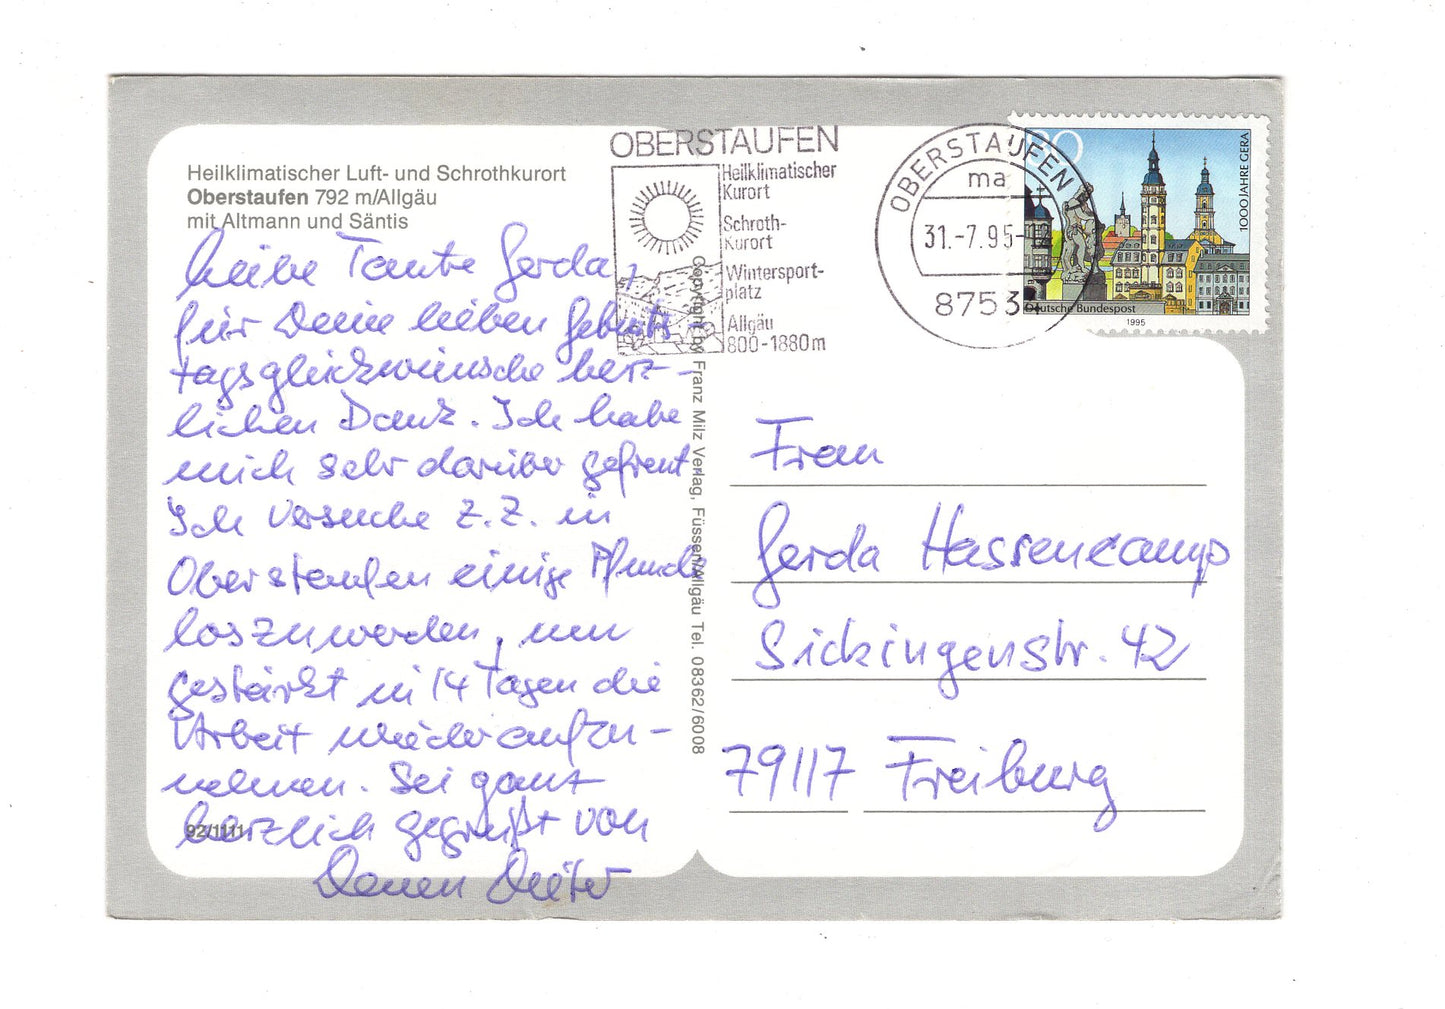 Heilklimatischer Luft- und Schrothkurort
Oberstaufen 792 m/Allgäu
mit Altmann und Säntis
Liebe Tante Gerda,
für Deine lieben Geburts
tagsglückwünsche herz-
lichen Dank. Ich habe
mich sehr darüber gefreut.
Ich versuche z.Z. in
Oberstaufen einige Pfunde
loszuwerden, um
gestärkt in 14 Tagen die
Arbeit wieder aufzu-
nehmen. Sei ganz
herzlich gegrüßt von
Deinem Dieter
92/1111
Copyright by Franz Milz Verlag, Füssen/Allgäu Tel. 08362/6008
OBERSTAUFEN
Heilklimatischer
Kurort
Schroth-
Kurort
Wintersport-
platz
Allgäu
800-1880m
OBERSTAUFEN
ma
31.-7.95-12
8753
80
1000 JAHRE GERA
Deutsche Bundespost
1995
Frau
Gerda Hassencamp
Sickingenstr. 42
79117 Freiburg